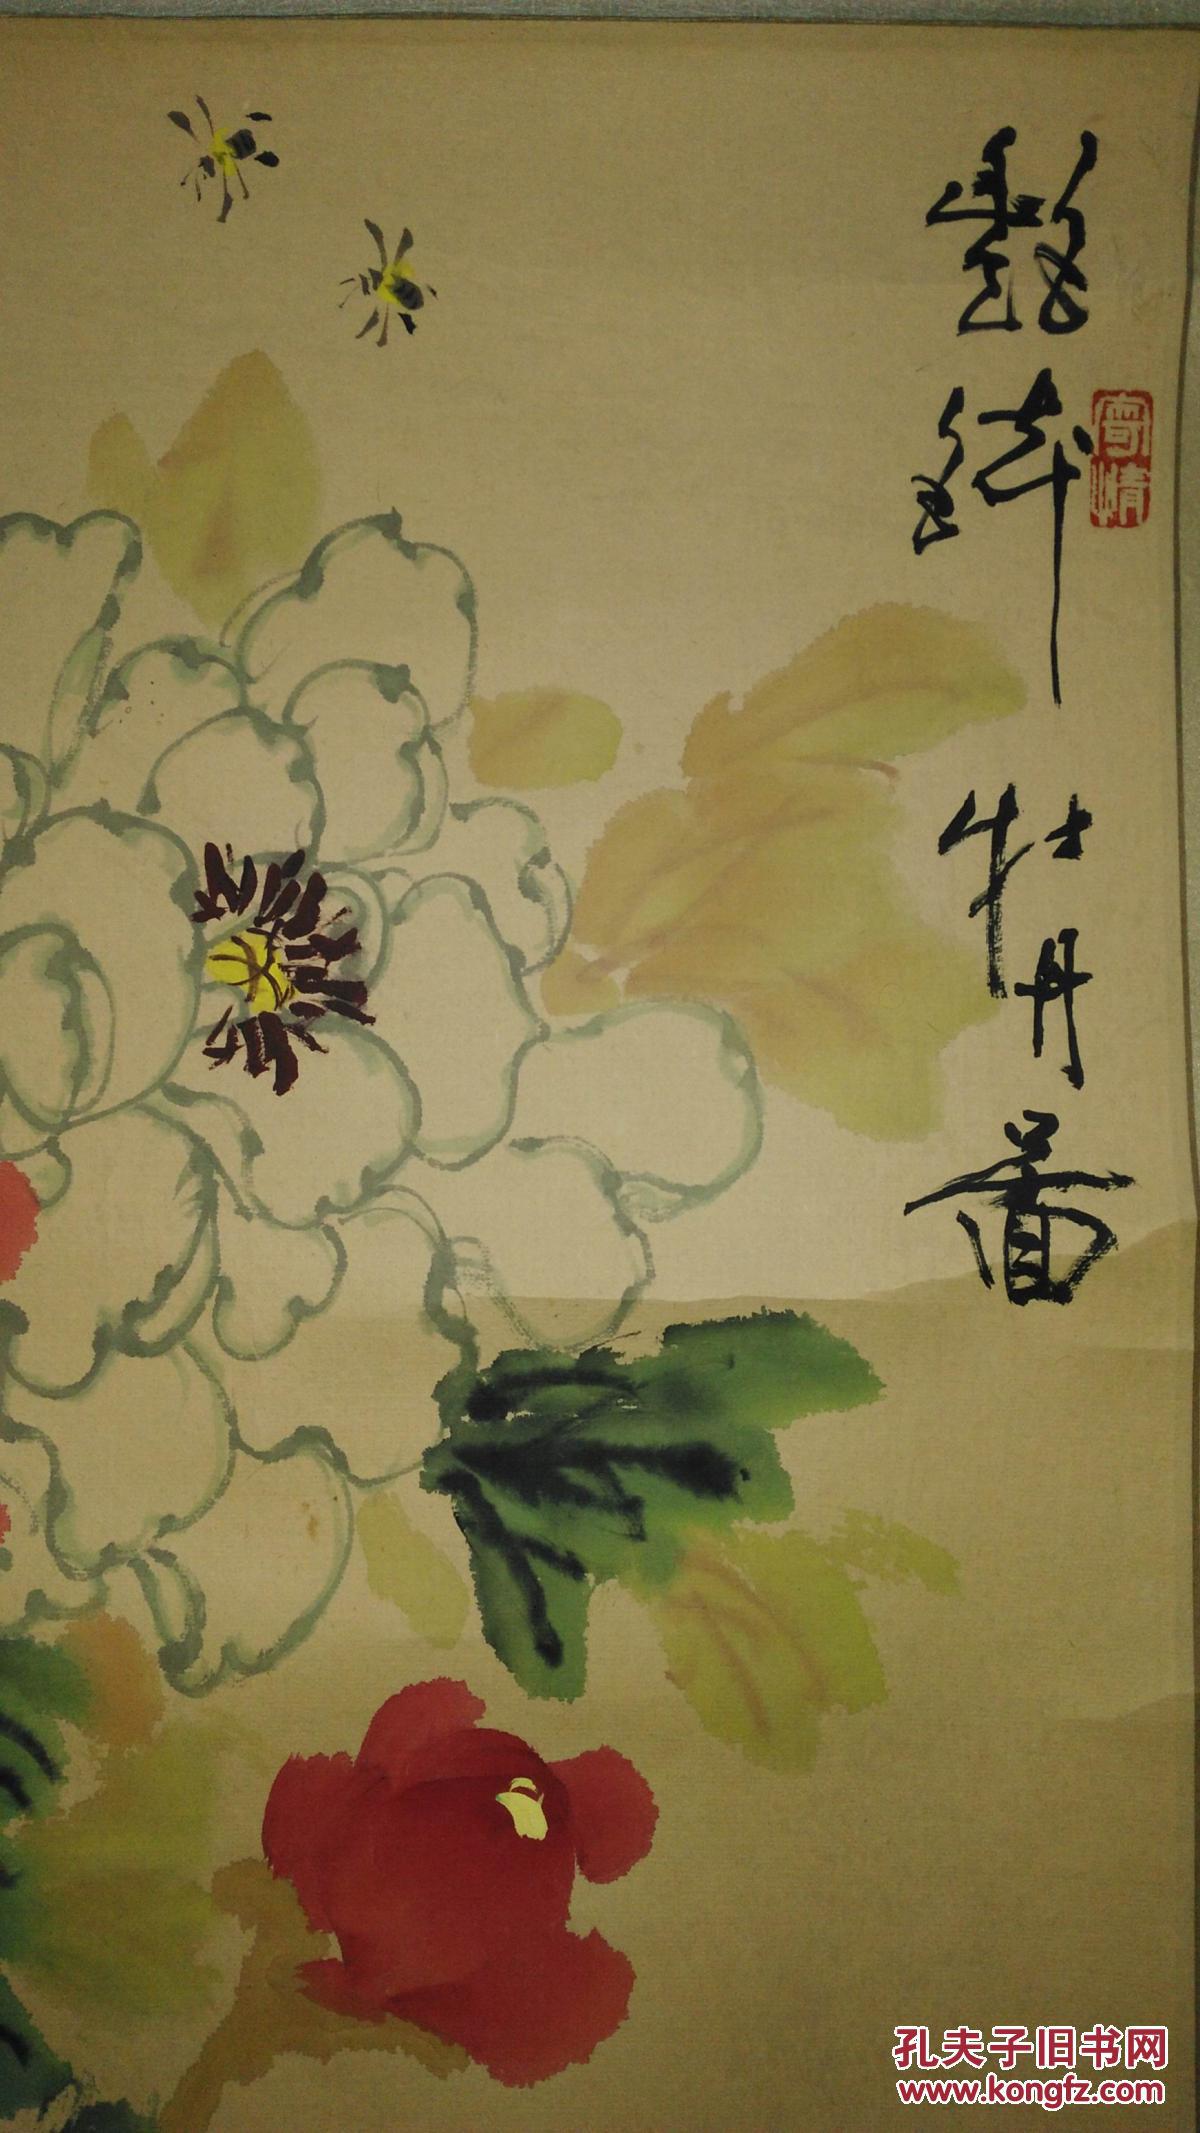 牡丹图
寄情
孔夫子旧书网
www.kongfz.com